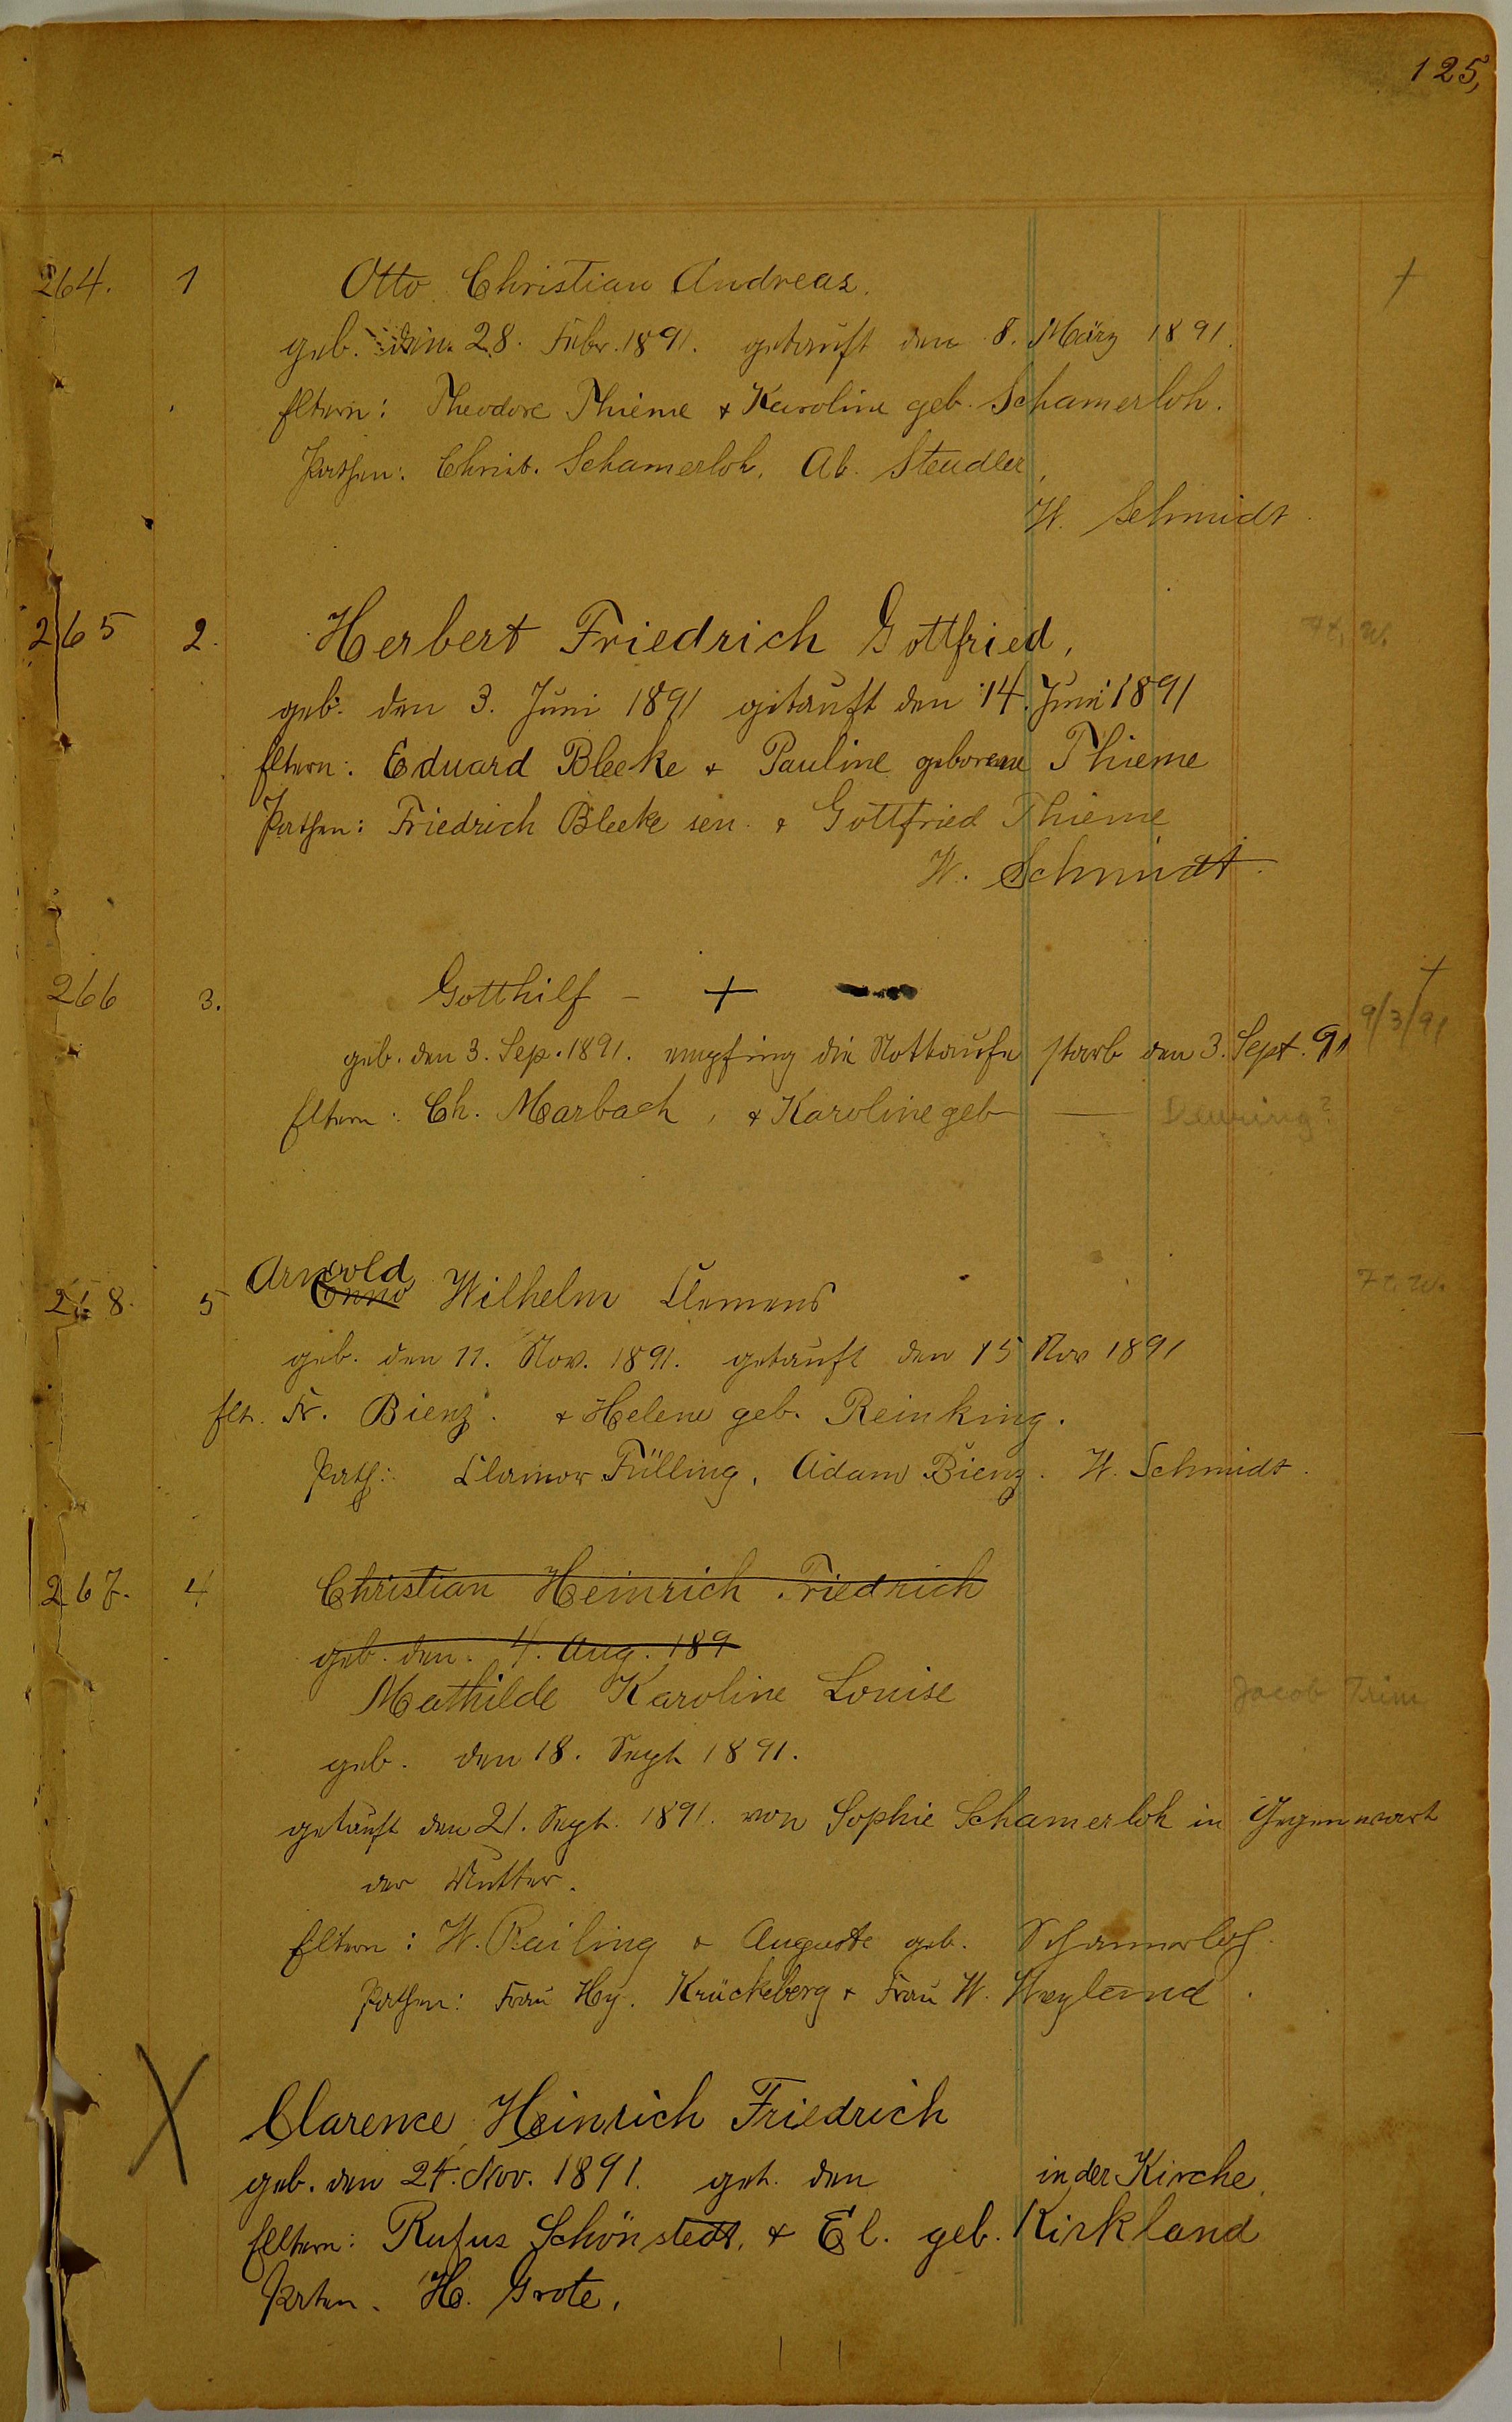 125,
264. 1 Otto Christian Andreas. †
geb. den 28. Febr. 1891. getauft den 8. März 1891.
Eltern: Theodore Thieme & Karoline geb. Schamerloh.
Pathen: Christ. Schamerloh, Ab. Steudler,
W. Schmidt.
265 2. Herbert Friedrich Gottfried, Ft. W.
geb. den 3. Juni 1891 getauft den 14. Juni 1891
Eltern: Eduard Bleeke & Pauline geborene Thieme
Pathen: Friedrich Bleeke sen. & Gottfried Thieme
W. Schmidt.
266 3. Gotthilf – + †
geb. den 3. Sep. 1891. empfing die Nottaufe starb den 3. Sept. 91 9/3/91
Eltern: Ch. Marbach, & Karoline geb — Deuring?
Arnold
268. 5 Enno Wilhelm Clemens Ft. W.
geb. den 11. Nov. 1891. getauft den 15 Nov 1891
Elt. Fr. Bienz. & Helene geb. Reinking.
Path: Clamor Fülling, Adam Bienz. W. Schmidt.
267. 4 Christian Heinrich Friedrich
geb. den. 4. Aug. 189
Mathilde Karoline Louise Jacob Trim
geb. den 18. Sept 1891.
getauft den 21. Sept. 1891. von Sophie Schamerloh in Gegenwart
der Mutter.
Eltern: W. Railing & Auguste geb. Schamerloh.
Pathen: Frau Hy. Krückeberg & Frau W. Weyland.
X Clarence Heinrich Friedrich
geb. den 24. Nov. 1891. get. den in der Kirche.
Eltern: Rufus Schönstedt, & El. geb. Kirkland
Paten. H. Grote.